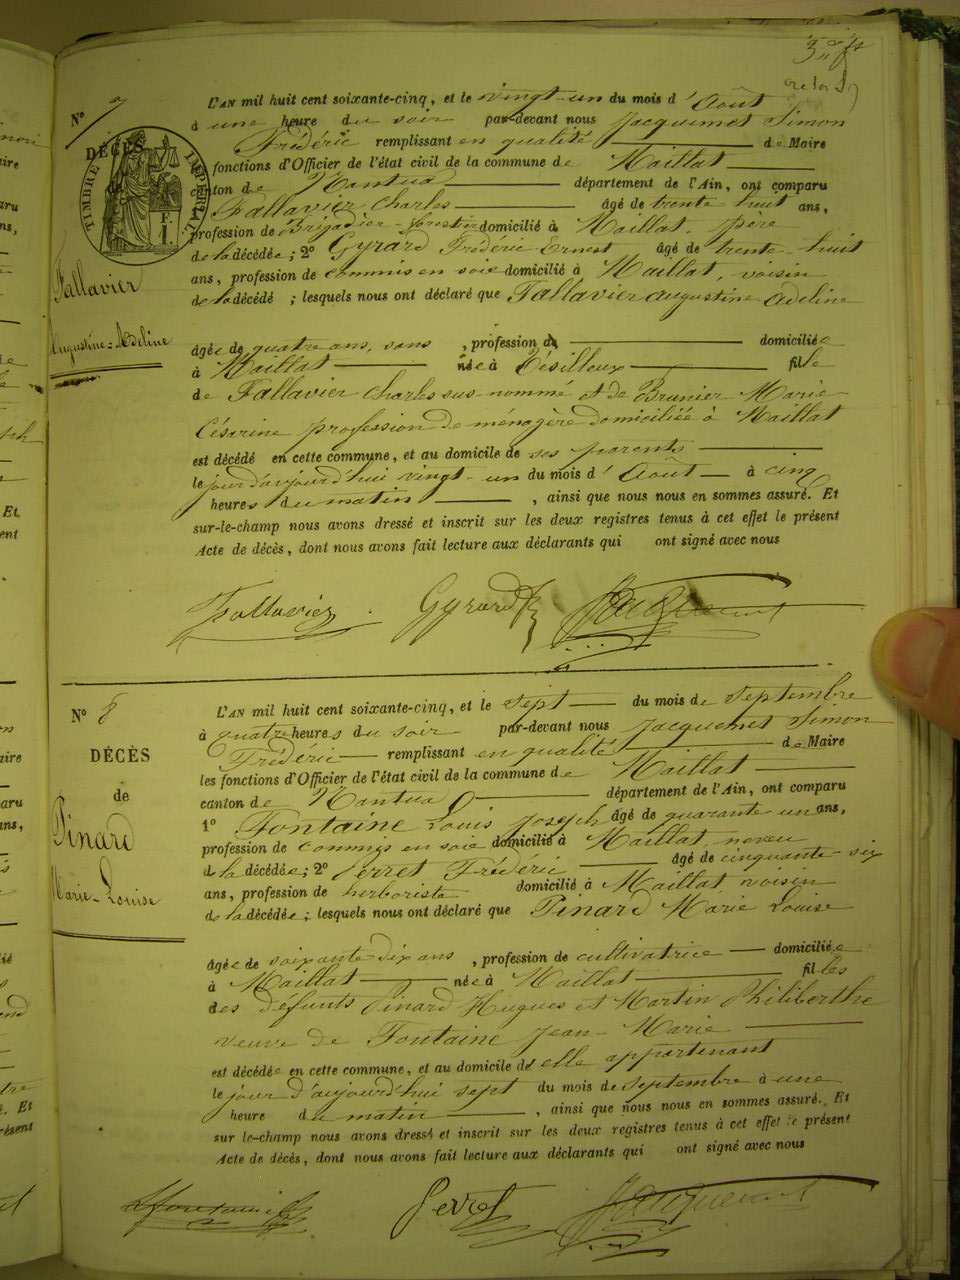 N° 7
DÉCÈS
TIMBRE IMPÉRIAL
Fallavier
Augustine-Adeline
L'AN mil huit cent soixante-cinq, et le vingt-un du mois d'Août
à une heure du soir par-devant nous Jacquemet Simon
Frédéric remplissant en qualité de Maire
fonctions d'Officier de l'état civil de la commune de Maillat
canton de Nantua département de l'Ain, ont comparu
Fallavier Charles âgé de trente huit ans,
profession de Brigadier forestier domicilié à Maillat, père
de la décédée; 2° Gyrard Frédéric Ernest âgé de trente-huit
ans, profession de commis en soie domicilié à Maillat, voisin
de la décédé ; lesquels nous ont déclaré que Fallavier Augustine Adeline
âgée de quatre ans, sans , profession d domiciliée
à Maillat née à fille
de Fallavier Charles sus-nommé et de Brunier Marie
Césarine profession de ménagère domiciliée à Maillat
est décédé en cette commune, et au domicile de ses parents
le jour d'aujourd'hui vingt-un du mois d'Août à cinq
heures du matin , ainsi que nous nous en sommes assuré. Et
sur-le-champ nous avons dressé et inscrit sur les deux registres tenus à cet effet le présent
Acte de décès, dont nous avons fait lecture aux déclarants qui ont signé avec nous
Fallavier Gyrard Jacquemet
N° 8
DÉCÈS
de
Pinard
Marie-Louise
L'AN mil huit cent soixante-cinq, et le sept du mois de Septembre
à quatre heures du soir par-devant nous Jacquemet Simon
Frédéric remplissant en qualité de Maire
les fonctions d'Officier de l'état civil de la commune de Maillat
canton de Nantua département de l'Ain, ont comparu
1° Fontaine Louis Joseph âgé de quarante un ans,
profession de commis en soie domicilié à Maillat neveu
de la décédée; 2° Perret Frédéric âgé de cinquante-six
ans, profession de herboriste domicilié à Maillat, voisin
de la décédée; lesquels nous ont déclaré que Pinard Marie Louise
âgée de soixante dix ans , profession de cultivatrice domiciliée
à Maillat née à Maillat filles
des défunts Pinard Hugues et Martin Philiberthe
veuve de Fontaine Jean-Marie
est décédée en cette commune, et au domicile de elle appartenant
le jour d'aujourd'hui sept du mois de septembre à une
heure du matin , ainsi que nous nous en sommes assuré. Et
sur le-champ nous avons dressé et inscrit sur les deux registres tenus à cet effet le présent
Acte de décès, dont nous avons fait lecture aux déclarants qui ont signé avec nous
Lfontaine Perret Jacquemet